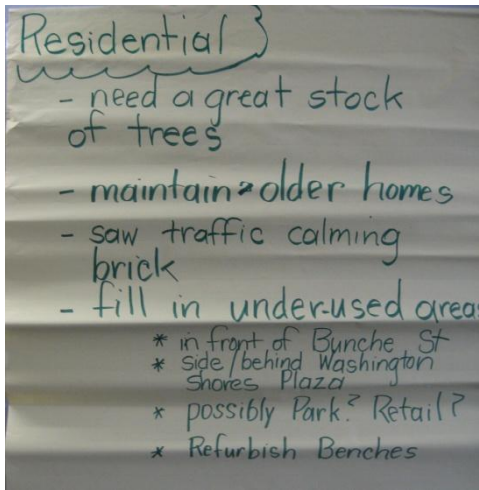 Residential
- need a great stock
of trees
- maintain older homes
- saw traffic calming
brick
- fill in under-used areas
* in front of Bunche St
* side/behind Washington
Shores Plaza
* possibly Park? Retail?
* Refurbish Benches